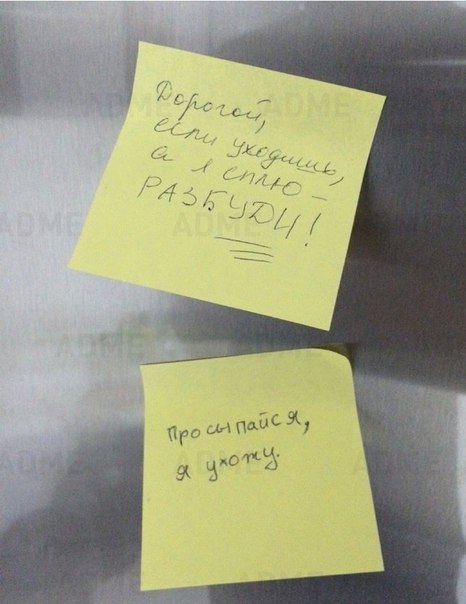 Дорогой,
если уходишь,
а я сплю –
РАЗБУДИ!
Просыпайся,
я ухожу.
ADME
ADME
ADME
ADME
ADME
ADME